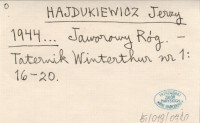 HAJDUKIEWICZ Jerzy
1944... Jaworowy Róg. –
Taternik Winterthur nr 1:
16-20.